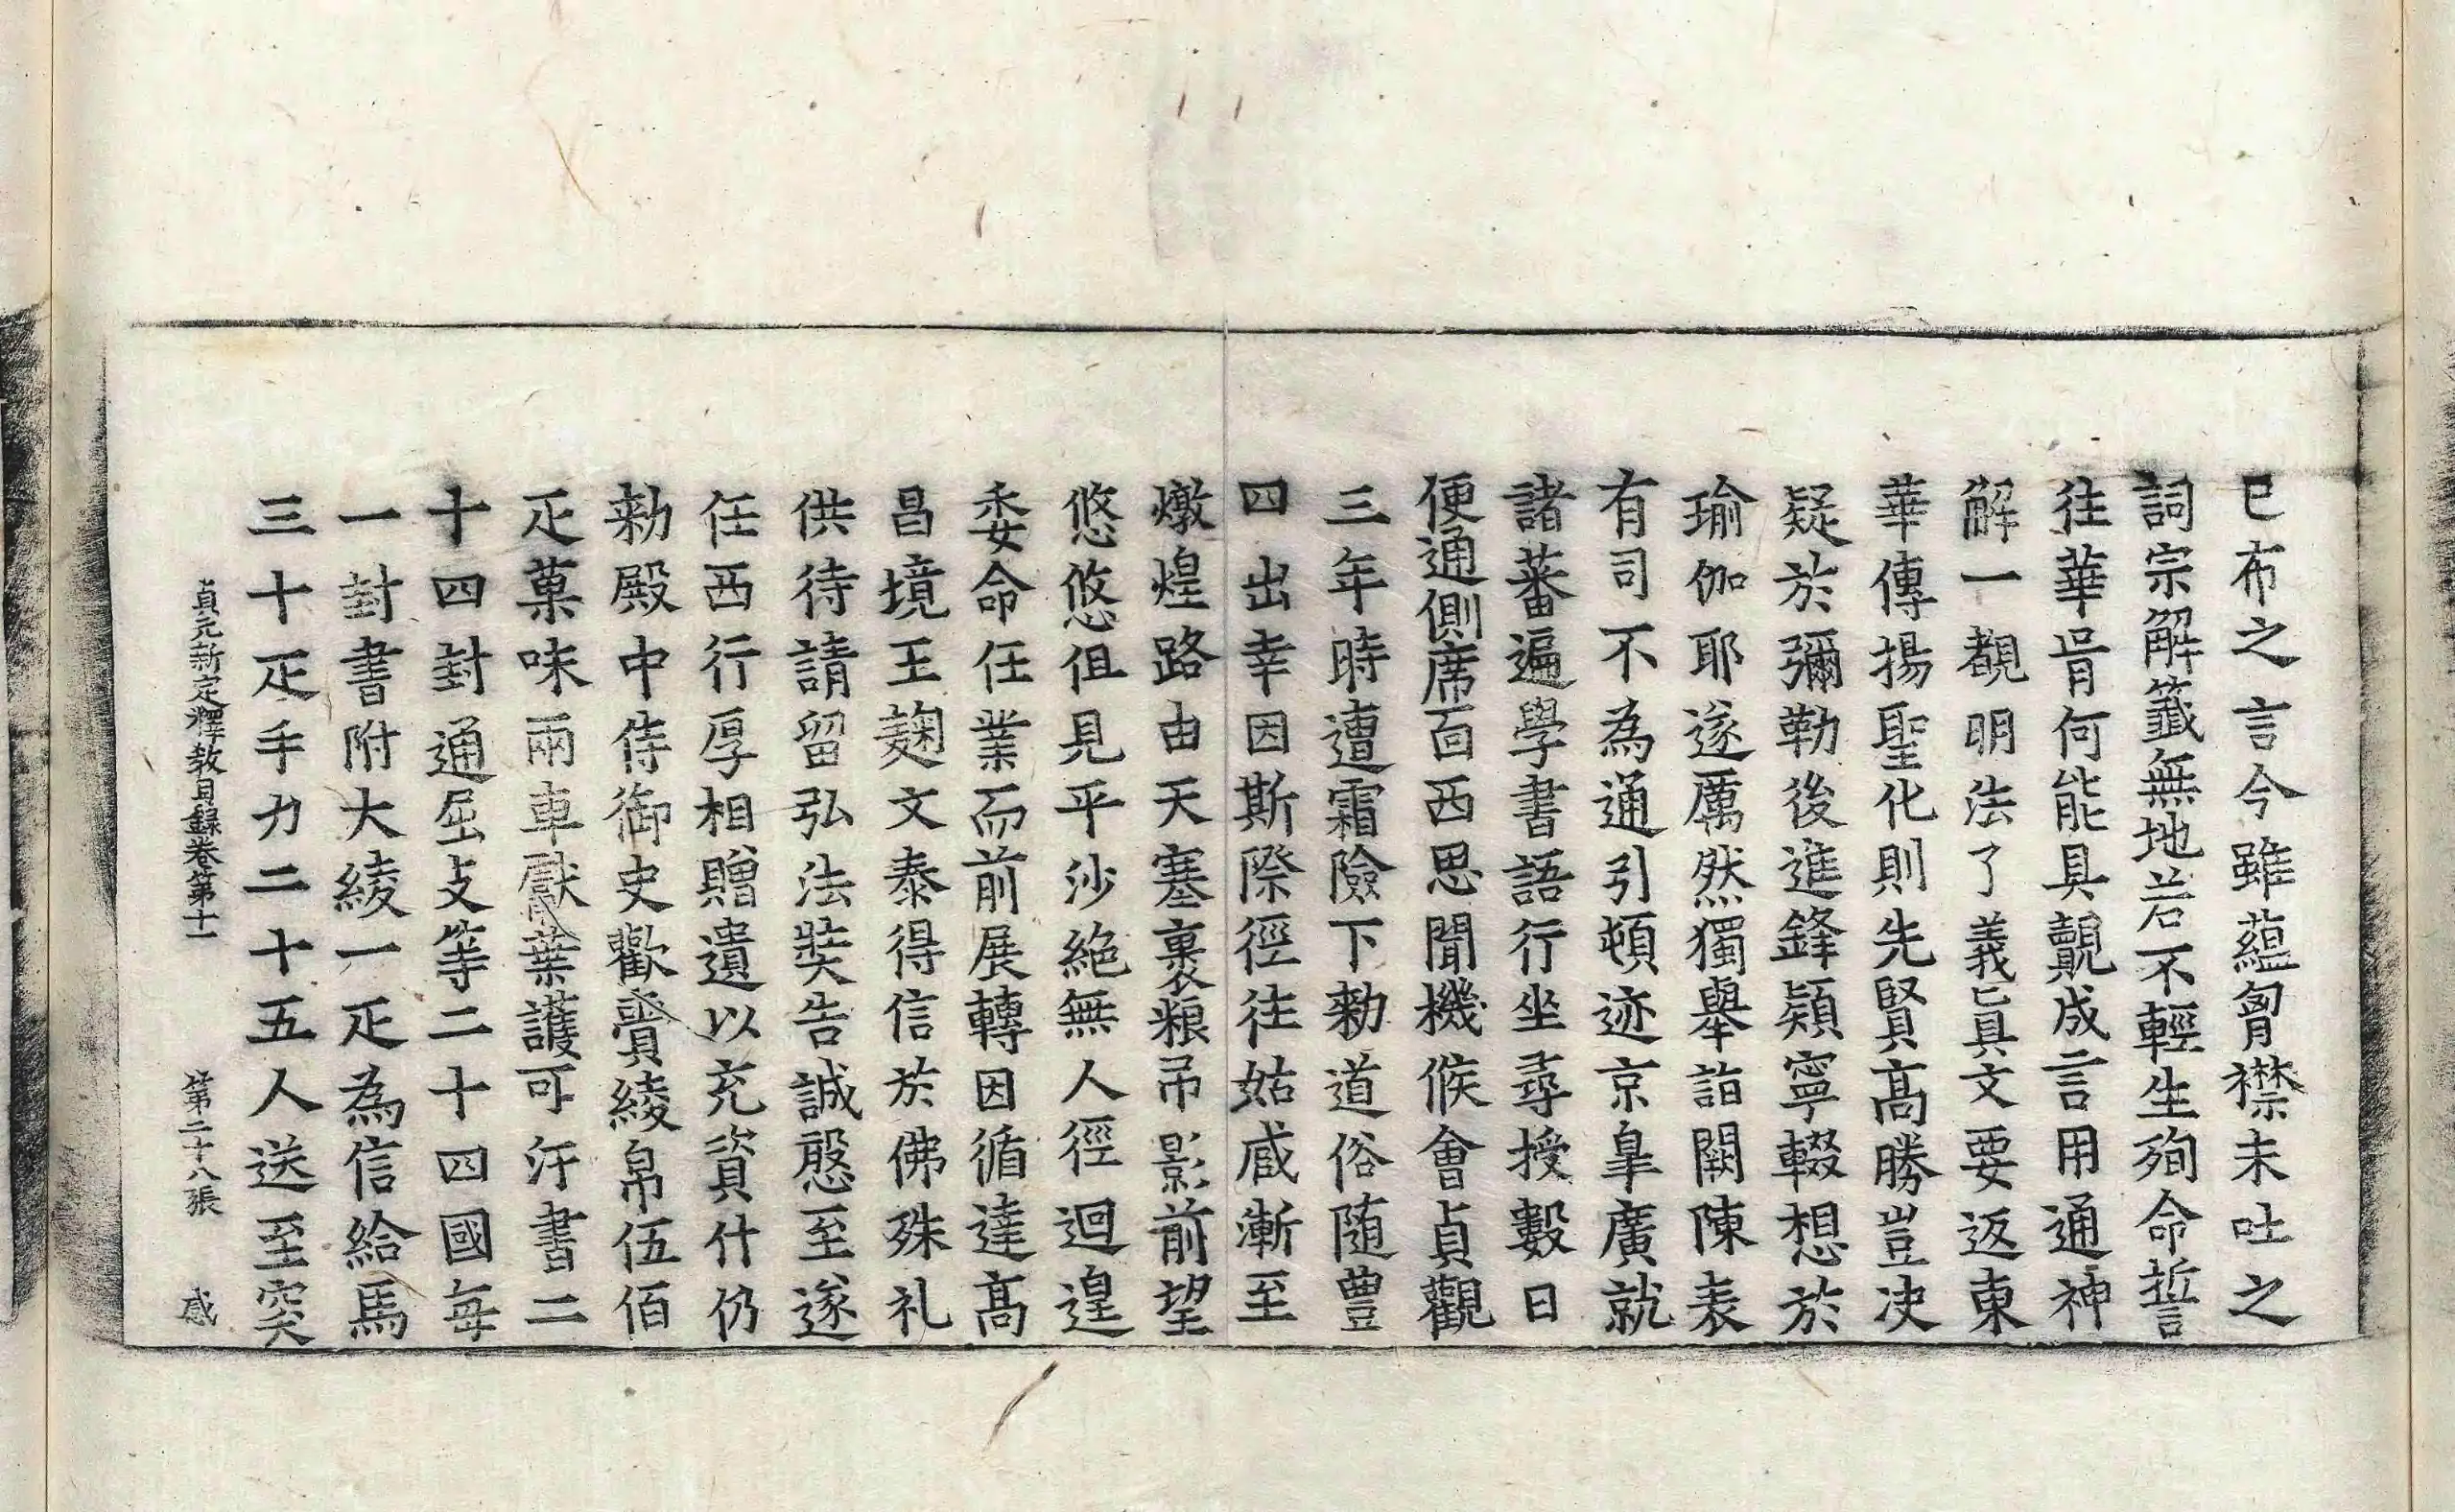 已布之言今雖蘊胷襟未吐之
詞宗解籤無地若不輕生殉命誓
往華胥何能具覿成言用通神
解一覩明法了義真文要返東
華傳揚聖化則先賢高勝豈决
疑於彌勒後進鋒穎寧輟想於
瑜伽耶遂厲然獨舉詣闕陳表
有司不為通引頓迹京皐廣就
諸蕃遍學書語行坐尋授數日
便通側席面西思聞機候會貞觀
三年時遭霜險下勑道俗随豊
四出幸因斯際徑往姑臧漸至
燉煌路由天塞裹粮吊影前望
悠悠但見平沙絶無人徑迴遑
委命任業而前展轉因循達高
昌境王麹文泰得信於佛殊礼
供待請留弘法奘告誠慇至遂
任西行厚相贈遺以充資什仍
勑殿中侍御史歡賷綾帛伍佰
疋菓味兩車獻葉護可汗書二
十四封通屈支等二十四國每
一封書附大綾一疋為信給馬
三十疋手力二十五人送至突
貞元新定釋教目錄卷第十一 第二十八張 感